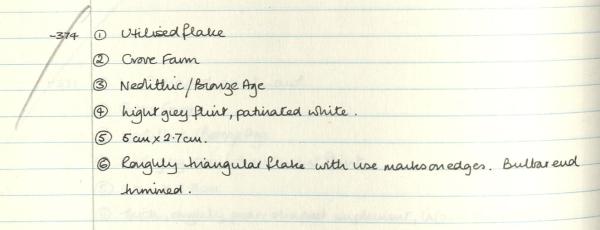 -374 ① Utilised flake
② Grove Farm
③ Neolithic/Bronze Age
④ Light grey flint, patinated white.
⑤ 5cm x 2.7cm.
⑥ Roughly triangular flake with use marks on edges. Bulbar end
trimmed.